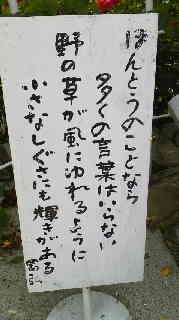 ほんとうのことなら
多くの言葉はいらない
野の草が風にゆれるように
小さなしぐさにも輝きがある